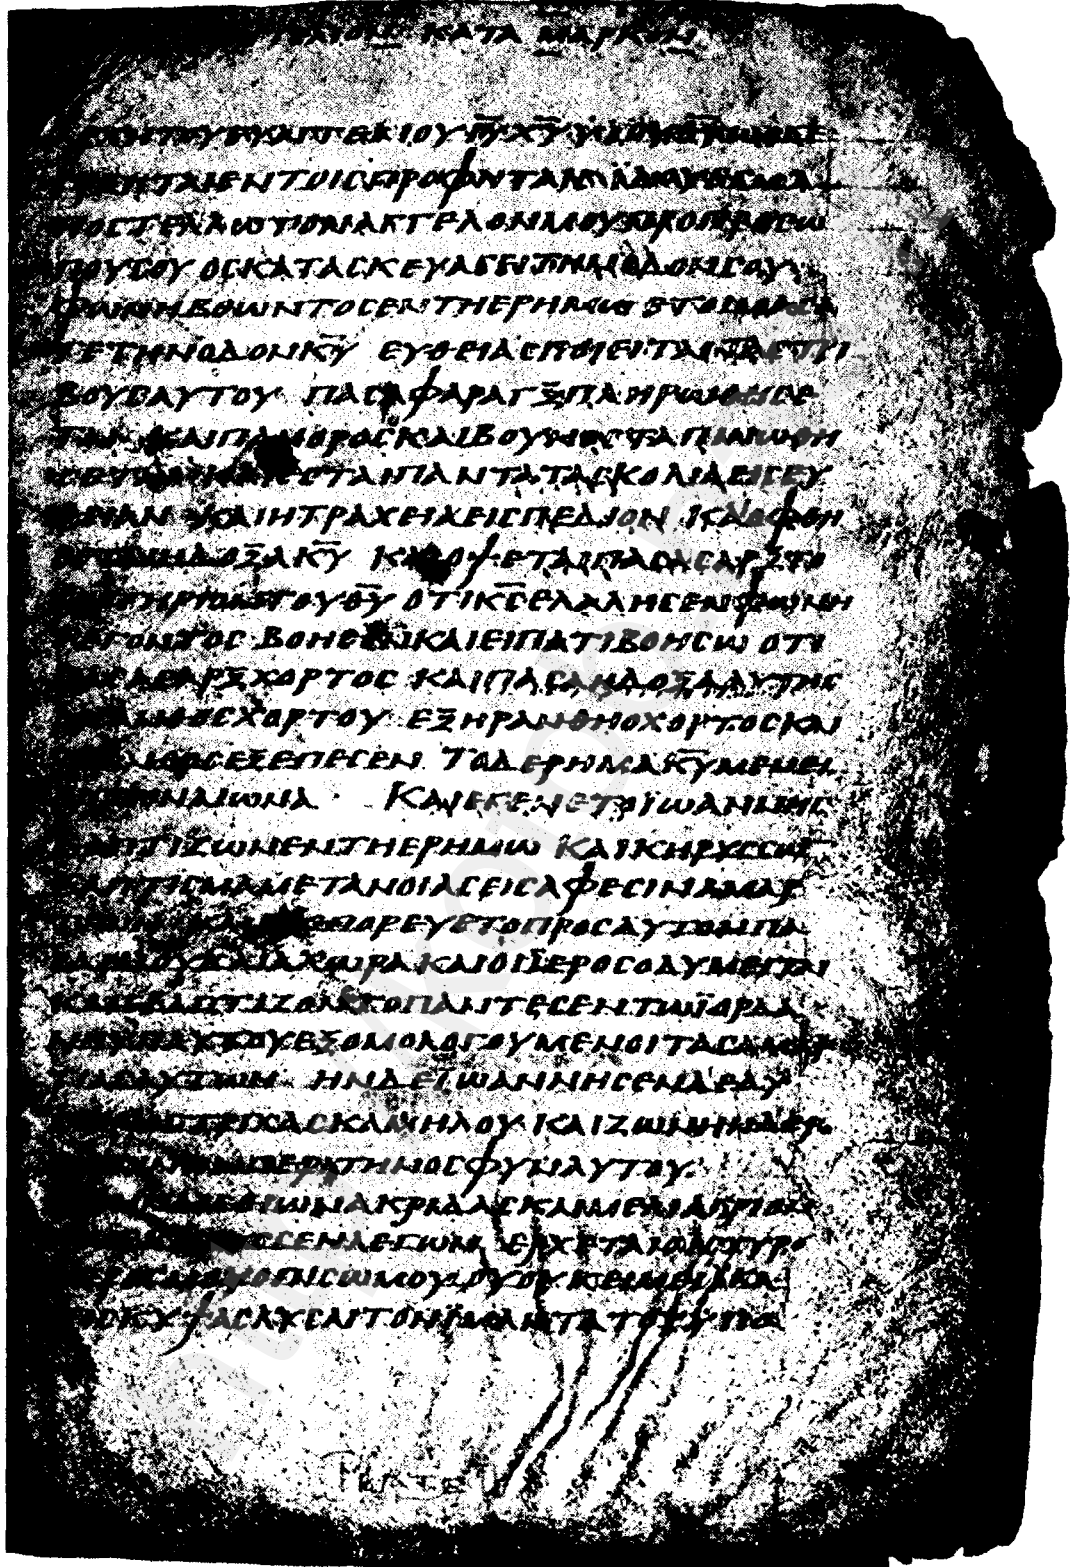 ΚΑΤΑ ΜΑΡΚΟΝ
ΑΡΧΗ ΤΟΥ ΕΥΑΓΓΕΛΙΟΥ ΙΥ ΧΥ
ΓΕΓΡΑΠΤΑΙ ΕΝ ΤΟΙΣ ΠΡΟΦΗΤΑΙΣ ΪΔΟΥ ΕΓΩ Α
ΠΟΣΤΕΛΛΩ ΤΟΝ ΑΓΓΕΛΟΝ ΜΟΥ ΠΡΟ ΠΡΟΣΩ
ΠΟΥ ΣΟΥ ΟΣ ΚΑΤΑΣΚΕΥΑΣΕΙ ΤΗΝ ΟΔΟΝ ΣΟΥ
ΦΩΝΗ ΒΟΩΝΤΟΣ ΕΝ ΤΗ ΕΡΗΜΩ ΕΤΟΙΜΑΣΑ
ΤΕ ΤΗΝ ΟΔΟΝ ΚΥ ΕΥΘΕΙΑΣ ΠΟΙΕΙΤΑΙ ΤΑΣ ΤΡΙ
ΒΟΥΣ ΑΥΤΟΥ ΠΑΣΑ ΦΑΡΑΓΞ ΠΛΗΡΩΘΗΣΕ
ΤΑΙ ΚΑΙ ΠΑΝ ΟΡΟΣ ΚΑΙ ΒΟΥΝΟΣ ΤΑΠΙΝΩΘΗ
ΣΕΤΑΙ ΚΑΙ ΕΣΤΑΙ ΠΑΝΤΑ ΤΑ ΣΚΟΛΙΑ ΕΙΣ ΕΥ
ΘΙΑΝ ΚΑΙ Η ΤΡΑΧΕΙΑ ΕΙΣ ΠΕΔΙΟΝ ΚΑΙ ΟΦΘΗ
ΣΕΤΑΙ Η ΔΟΞΑ ΚΥ ΚΑΙ ΟΨΕΤΑΙ ΠΑΣΑ ΣΑΡΞ ΤΟ
ΣΩΤΗΡΙΟΝ ΤΟΥ ΘΥ ΟΤΙ ΚΣ ΕΛΑΛΗΣΕΝ ΦΩΝΗ
ΛΕΓΟΝΤΟΣ ΒΟΗΣΟΝ ΚΑΙ ΕΙΠΑ ΤΙ ΒΟΗΣΩ ΟΤΙ
ΠΑΣΑ ΣΑΡΞ ΧΟΡΤΟΣ ΚΑΙ ΠΑΣΑ Η ΔΟΞΑ ΑΥΤΗΣ
ΩΣ ΑΝΘΟΣ ΧΟΡΤΟΥ ΕΞΗΡΑΝΘΗ Ο ΧΟΡΤΟΣ ΚΑΙ
ΤΟ ΑΝΘΟΣ ΕΞΕΠΕΣΕΝ ΤΟ Δ Ε ΡΗΜΑ ΚΥ ΜΕΝΕΙ
ΕΙΣ ΤΟΝ ΑΙΩΝΑ ΚΑΙ ΕΓΕΝΕΤΟ ΪΩΑΝΝΗΣ
ΒΑΠΤΙΖΩΝ ΕΝ ΤΗ ΕΡΗΜΩ ΚΑΙ ΚΗΡΥΣΣΩΝ
ΒΑΠΤΙΣΜΑ ΜΕΤΑΝΟΙΑΣ ΕΙΣ ΑΦΕΣΙΝ ΑΜΑΡ
ΤΙΩΝ ΚΑΙ ΕΞΕΠΟΡΕΥΕΤΟ ΠΡΟΣ ΑΥΤΟΝ ΠΑ
ΣΑ Η ΪΟΥΔΑΙΑ ΧΩΡΑ ΚΑΙ ΟΙ ΪΕΡΟΣΟΛΥΜΕΙΤΑΙ
ΚΑΙ ΕΒΑΠΤΙΖΟΝΤΟ ΠΑΝΤΕΣ ΕΝ ΤΩ ΪΟΡΔΑ
ΝΗ ΥΠ ΑΥΤΟΥ ΕΞΟΜΟΛΟΓΟΥΜΕΝΟΙ ΤΑΣ ΑΜΑΡ
ΤΙΑΣ ΑΥΤΩΝ ΗΝ ΔΕ ΪΩΑΝΝΗΣ ΕΝΔΕΔΥ
ΜΕΝΟΣ ΤΡΙΧΑΣ ΚΑΜΗΛΟΥ ΚΑΙ ΖΩΝΗΝ ΔΕΡ
ΜΑΤΙΝΗΝ ΠΕΡΙ ΤΗΝ ΟΣΦΥΝ ΑΥΤΟΥ
ΚΑΙ ΕΣΘΙΩΝ ΑΚΡΙΔΑΣ ΚΑΙ ΜΕΛΙ ΑΓΡΙΟΝ
ΚΑΙ ΕΚΗΡΥΣΣΕΝ ΛΕΓΩΝ ΕΡΧΕΤΑΙ Ο ΙΣΧΥΡΟ
ΤΕΡΟΣ ΜΟΥ ΟΠΙΣΩ ΜΟΥ ΟΥ ΟΥΚ ΕΙΜΕΙ ΙΚΑ
ΝΟΣ ΚΥΨΑΣ ΛΥΣΑΙ ΤΟΝ ΪΜΑΝΤΑ ΤΟΥ ΥΠΟ